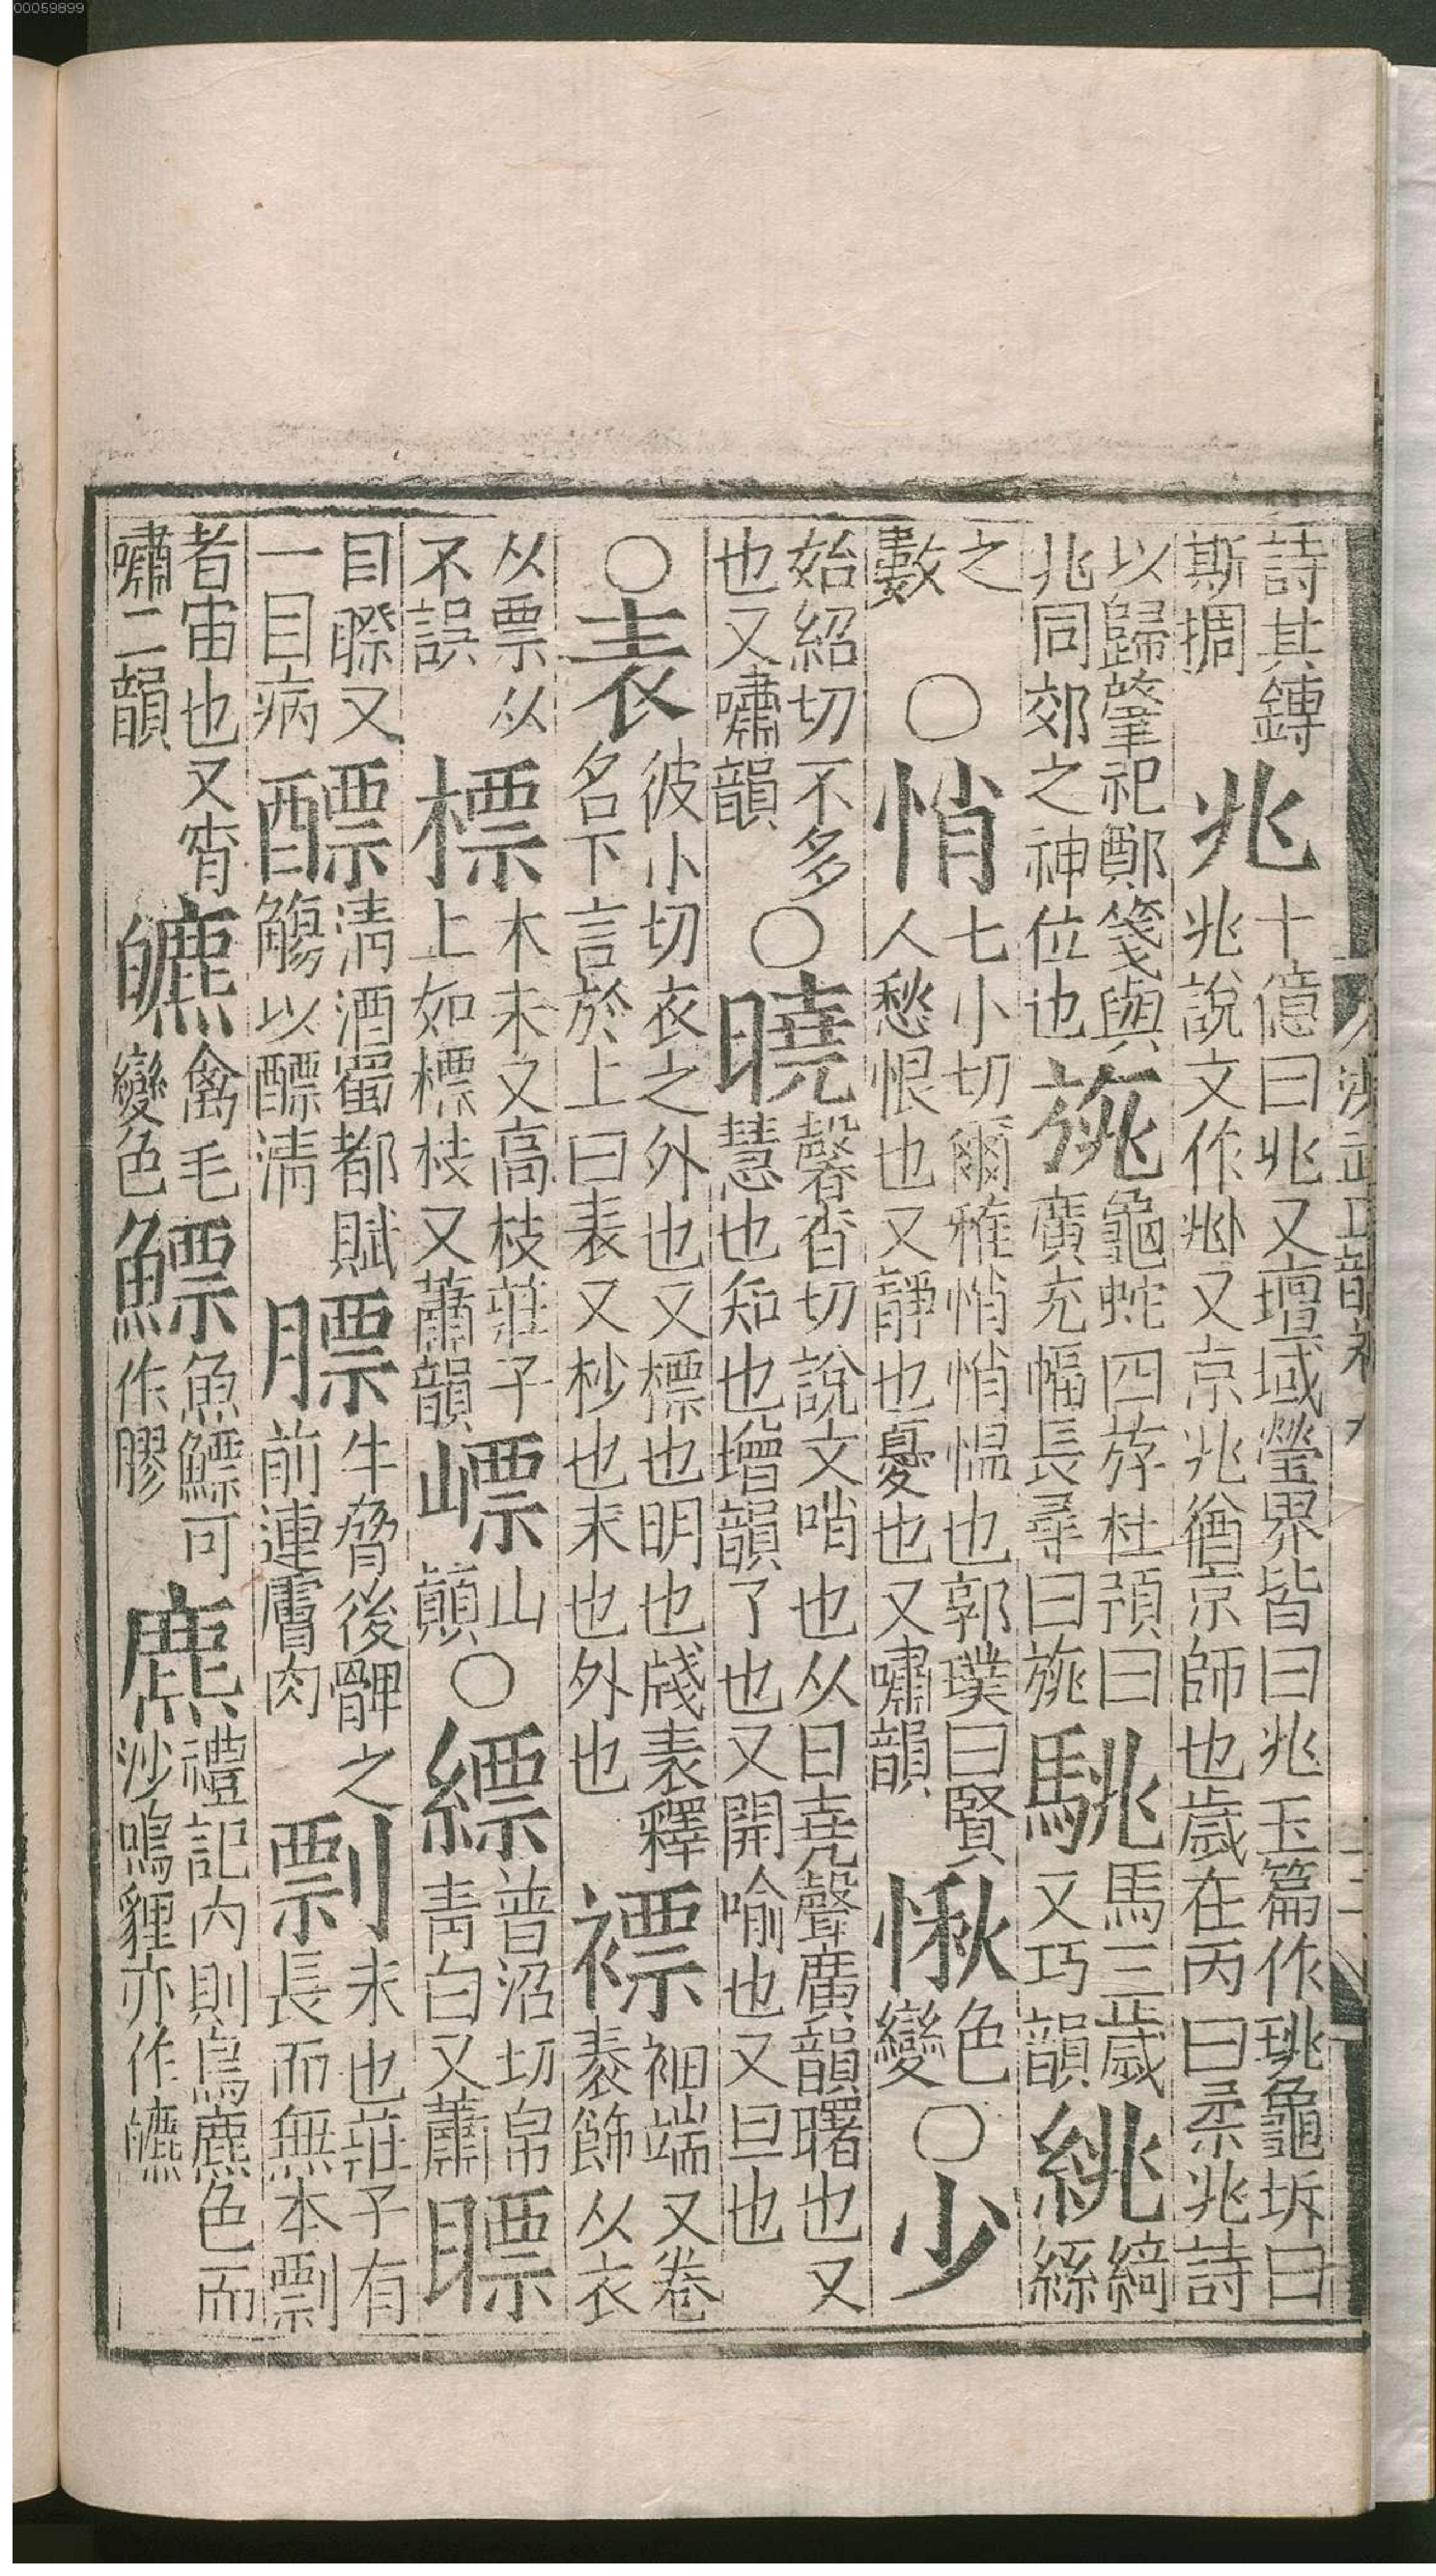 00059899
詩其鏄
斯掆
兆
十億曰兆又壇域塋界皆曰兆玉篇作珧龜坼曰
兆說文作𠧞又京兆猶京師也歲在丙曰柔兆詩
以歸肈祀鄭箋與
兆同郊之神位也
旐
龜蛇四斿杜預曰
廣充幅長尋曰旐
駣
馬三歲
又巧韻
絩
綺
絲
之
數
○
悄
七小切爾雅悄悄慍也郭璞曰賢
人愁恨也又靜也憂也又嘯韻
愀
色
變
○
少
始紹切不多
也又嘯韻
○
曉
馨杳切說文哨也从日堯聲廣韻曙也又
慧也知也增韻了也又開喻也又旦也
○
表
彼小切衣之外也又標也明也牋表釋
名下言於上曰表又杪也末也外也
褾
袖端又卷
表飾从衣
从票从
不誤
標
木末又高枝莊子
上如標枝又蕭韻
嶛
山
巓
○
縹
普沼切帛
青白又蕭
瞟
目瞭又
一目病
醥
淸酒蜀都賦
觴以醥淸
膘
牛脅後髀之
前連膚肉
剽
末也莊子有
長而無本剽
者宙也又宵
嘯二韻
皫
禽毛
變色
鰾
魚鰾可
作膠
麃
禮記內則鳥麃色而
沙鳴貍亦作皫